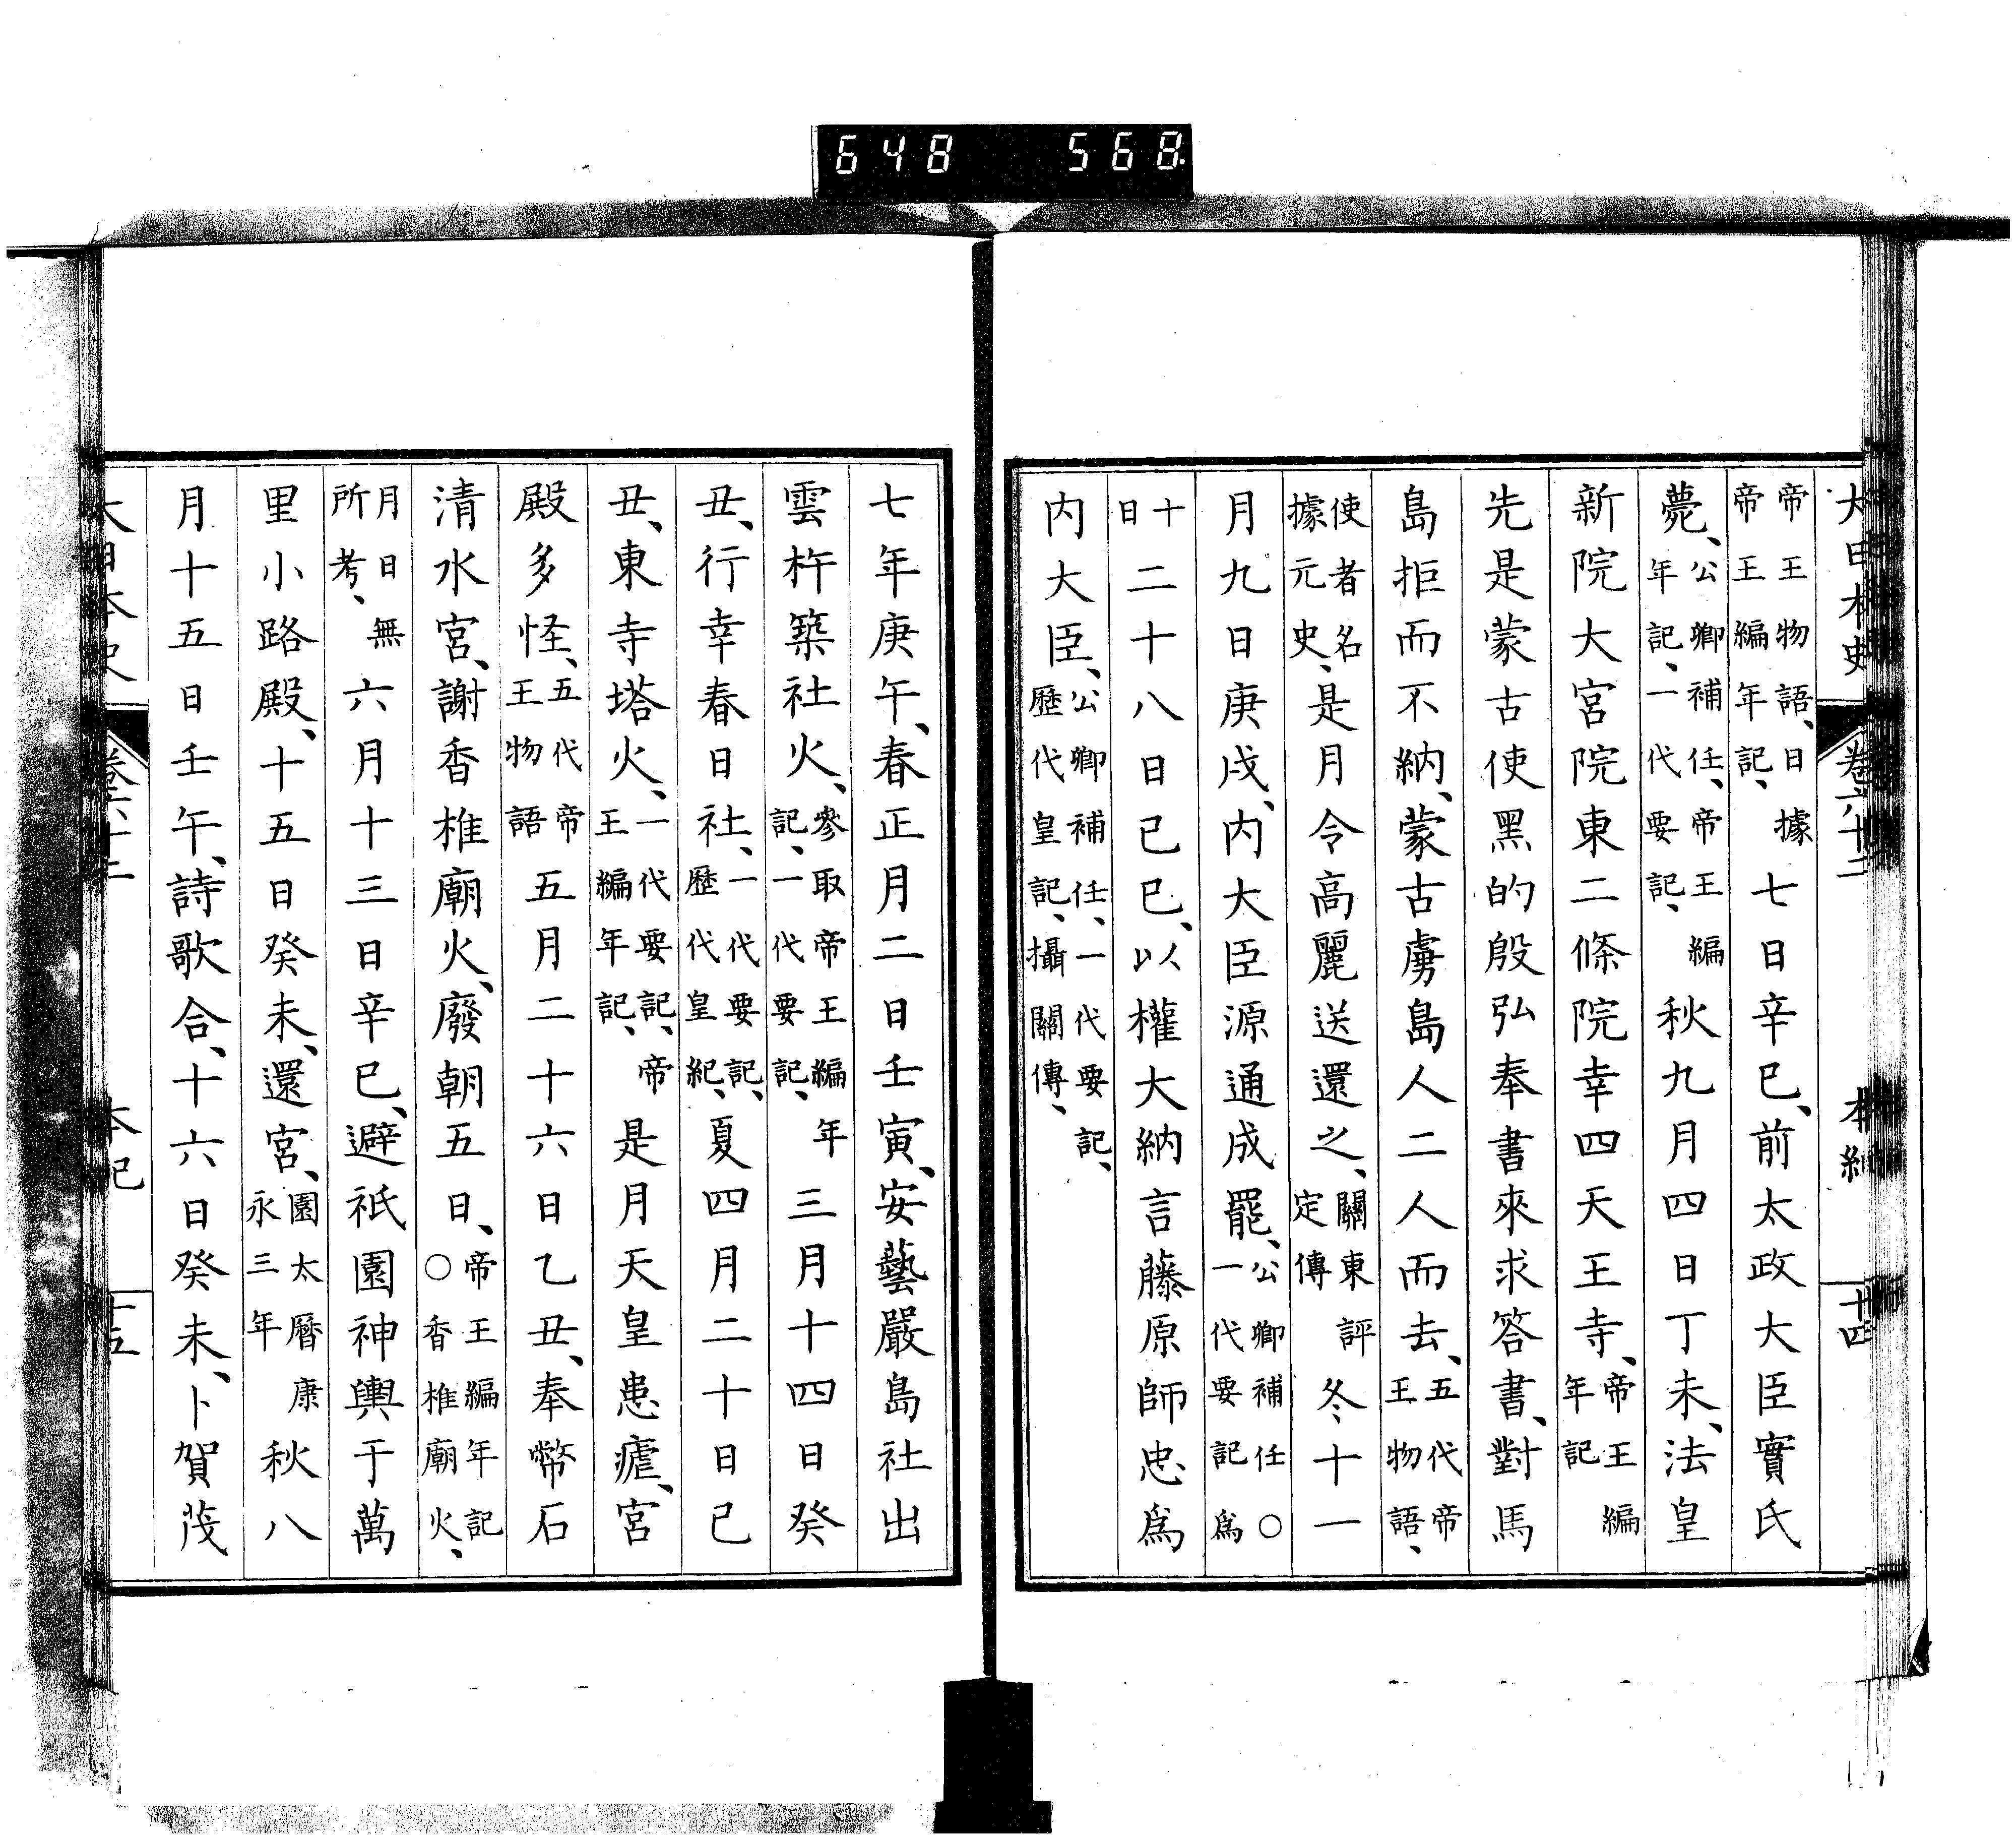 648 568
大日本史 卷六十二 本紀 十四
帝王物語、日據帝王編年記、七日辛巳、前太政大臣實氏
薨、公卿補任、帝王編年記、一代要記、秋九月四日丁未、法皇
新院大宮院東二條院幸四天王寺、帝王編年記
先是蒙古使黑的殷弘奉書來求答書、對馬
島拒而不納、蒙古虜島人二人而去、五代帝王物語、
使者名據元史、是月令高麗送還之、關東評定傳冬十一
月九日庚戌、内大臣源通成罷、公卿補任○一代要記爲
十日二十八日己巳、以權大納言藤原師忠爲
内大臣、公卿補任、一代要記、歷代皇記、攝關傳、
七年庚午、春正月二日壬寅、安藝嚴島社出
雲杵築社火、參取帝王編年記、一代要記、三月十四日癸
丑、行幸春日社、一代要記、歷代皇紀、夏四月二十日己
丑、東寺塔火、一代要記、帝王編年記、是月天皇患瘧、宮
殿多怪、五代帝王物語五月二十六日乙丑、奉幣石
清水宮、謝香椎廟火、廢朝五日、帝王編年記○香椎廟火、
月日無所考、六月十三日辛巳、避祇園神輿于萬
里小路殿、十五日癸未、還宮、園太曆康永三年秋八
月十五日壬午、詩歌合、十六日癸未、卜賀茂
大日本史 卷六十二 本紀 十五